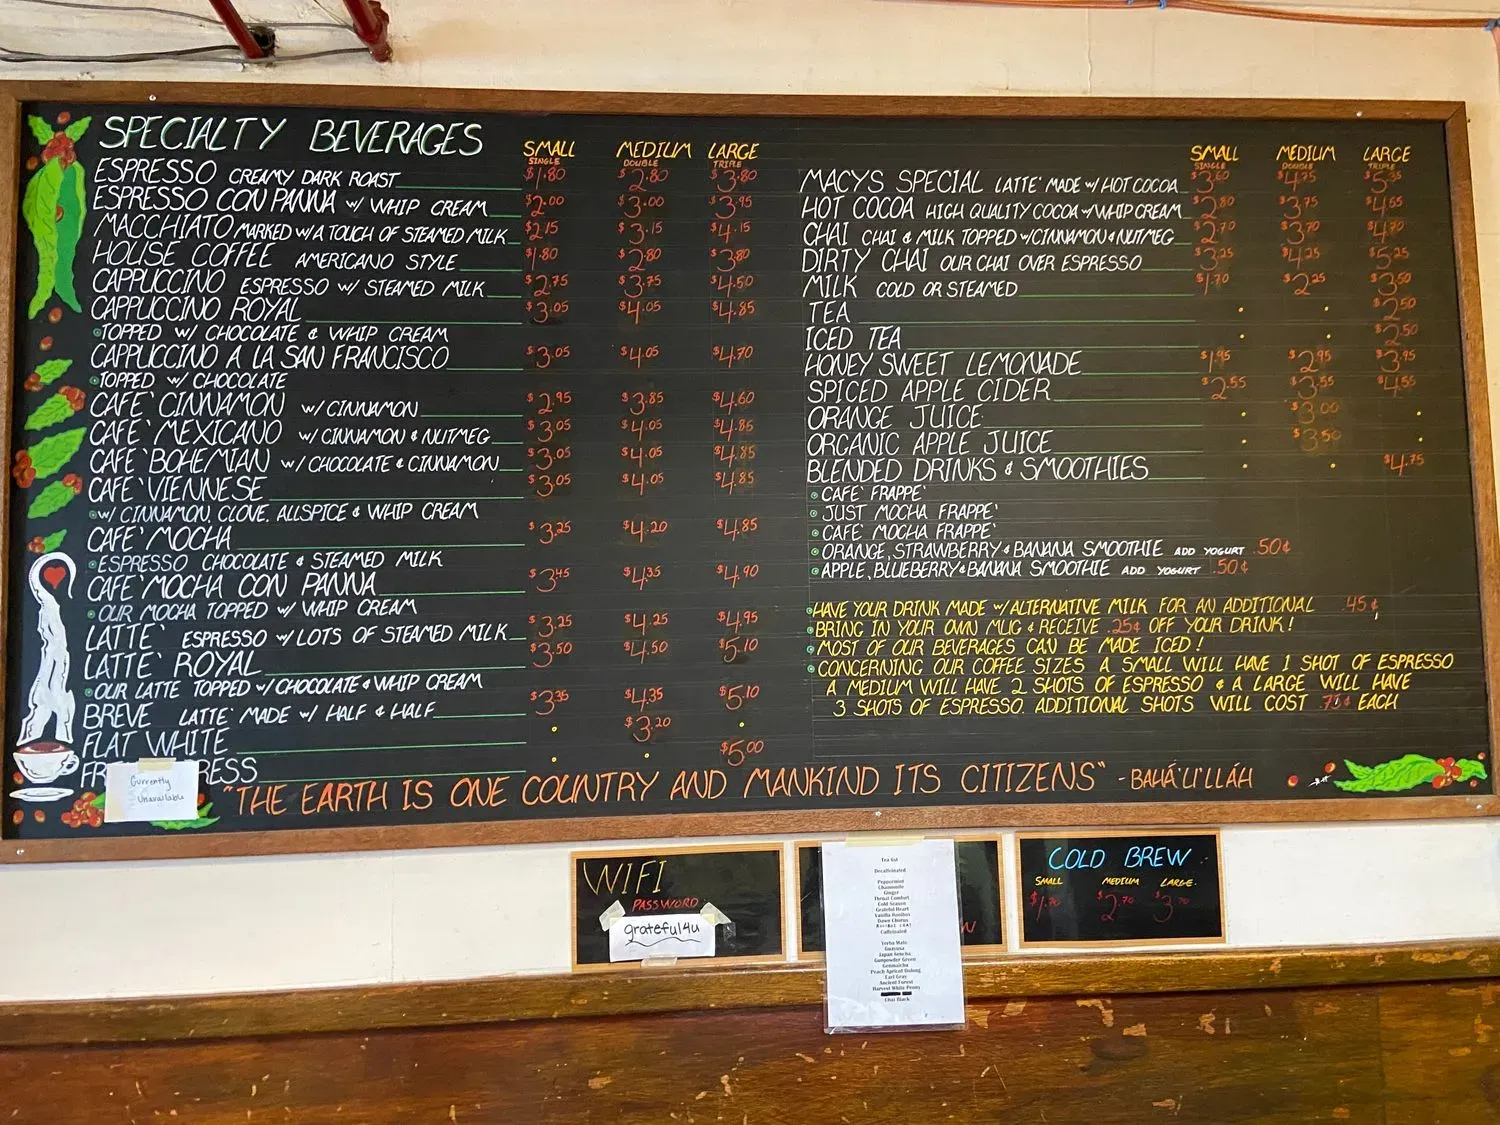 SPECIALTY BEVERAGES
SMALL MEDIUM LARGE
SINGLE DOUBLE TRIPLE
ESPRESSO CREAMY DARK ROAST $1.80 $2.80 $3.80
ESPRESSO CON PANNA W/ WHIP CREAM $2.00 $3.00 $3.95
MACCHIATO MARKED W/ A TOUCH OF STEAMED MILK $2.15 $3.15 $4.15
HOUSE COFFEE AMERICANO STYLE $1.80 $2.80 $3.80
CAPPUCCINO ESPRESSO W/ STEAMED MILK $2.75 $3.75 $4.50
CAPPUCCINO ROYAL $3.05 $4.05 $4.85
TOPPED W/ CHOCOLATE & WHIP CREAM
CAPPUCCINO A LA SAN FRANCISCO $3.05 $4.05 $4.70
TOPPED W/ CHOCOLATE
CAFE` CINNAMON W/ CINNAMON $2.95 $3.85 $4.60
CAFE` MEXICANO W/ CINNAMON & NUTMEG $3.05 $4.05 $4.85
CAFE` BOHEMIAN W/ CHOCOLATE & CINNAMON $3.05 $4.05 $4.85
CAFE` VIENNESE $3.05 $4.05 $4.85
W/ CINNAMON, CLOVE, ALLSPICE & WHIP CREAM
CAFE` MOCHA $3.25 $4.20 $4.85
ESPRESSO CHOCOLATE & STEAMED MILK
CAFE` MOCHA CON PANNA $3.45 $4.35 $4.90
OUR MOCHA TOPPED W/ WHIP CREAM
LATTE` ESPRESSO W/ LOTS OF STEAMED MILK $3.25 $4.25 $4.95
LATTE` ROYAL $3.50 $4.50 $5.10
OUR LATTE TOPPED W/ CHOCOLATE & WHIP CREAM
BREVE LATTE` MADE W/ HALF & HALF $3.35 $4.35 $5.10
FLAT WHITE $3.20
$5.00
Currently
Unavailable
SMALL MEDIUM LARGE
SINGLE DOUBLE TRIPLE
MACYS SPECIAL LATTE` MADE W/ HOT COCOA $3.60 $4.75 $5.35
HOT COCOA HIGH QUALITY COCOA W/ WHIP CREAM $2.80 $3.75 $4.65
CHAI CHAI & MILK TOPPED W/ CINNAMON & NUTMEG $2.70 $3.70 $4.70
DIRTY CHAI OUR CHAI OVER ESPRESSO $3.25 $4.25 $5.25
MILK COLD OR STEAMED $1.70 $2.25 $3.50
TEA $2.50
ICED TEA $2.50
HONEY SWEET LEMONADE $1.95 $2.95 $3.95
SPICED APPLE CIDER $2.55 $3.55 $4.55
ORANGE JUICE $3.00
ORGANIC APPLE JUICE $3.50
BLENDED DRINKS & SMOOTHIES $4.75
CAFE` FRAPPE`
JUST MOCHA FRAPPE`
CAFE` MOCHA FRAPPE`
ORANGE, STRAWBERRY & BANANA SMOOTHIE ADD YOGURT .50¢
APPLE, BLUEBERRY & BANANA SMOOTHIE ADD YOGURT .50¢
HAVE YOUR DRINK MADE W/ ALTERNATIVE MILK FOR AN ADDITIONAL .45¢
BRING IN YOUR OWN MUG & RECEIVE .25¢ OFF YOUR DRINK!
MOST OF OUR BEVERAGES CAN BE MADE ICED!
CONCERNING OUR COFFEE SIZES A SMALL WILL HAVE 1 SHOT OF ESPRESSO
A MEDIUM WILL HAVE 2 SHOTS OF ESPRESSO & A LARGE WILL HAVE
3 SHOTS OF ESPRESSO. ADDITIONAL SHOTS WILL COST .75¢ EACH
"THE EARTH IS ONE COUNTRY AND MANKIND ITS CITIZENS" - BAHÁ'U'LLÁH
WIFI
PASSWORD
grateful4u
Tea list
Decaffeinated
Peppermint
Chamomile
Ginger
Throat Comfort
Cold Season
Grateful Heart
Vanilla Rooibos
Dawn Chorus
ROOIBOS CHAI
Caffeinated
Yerba Mate
Guayusa
Japan Sencha
Gunpowder Green
Genmaicha
Peach Apricot Oolong
Earl Gray
Ancient Forest
Harvest White Peony
Chai Black
COLD BREW
SMALL MEDIUM LARGE
$1.70 $2.70 $3.70